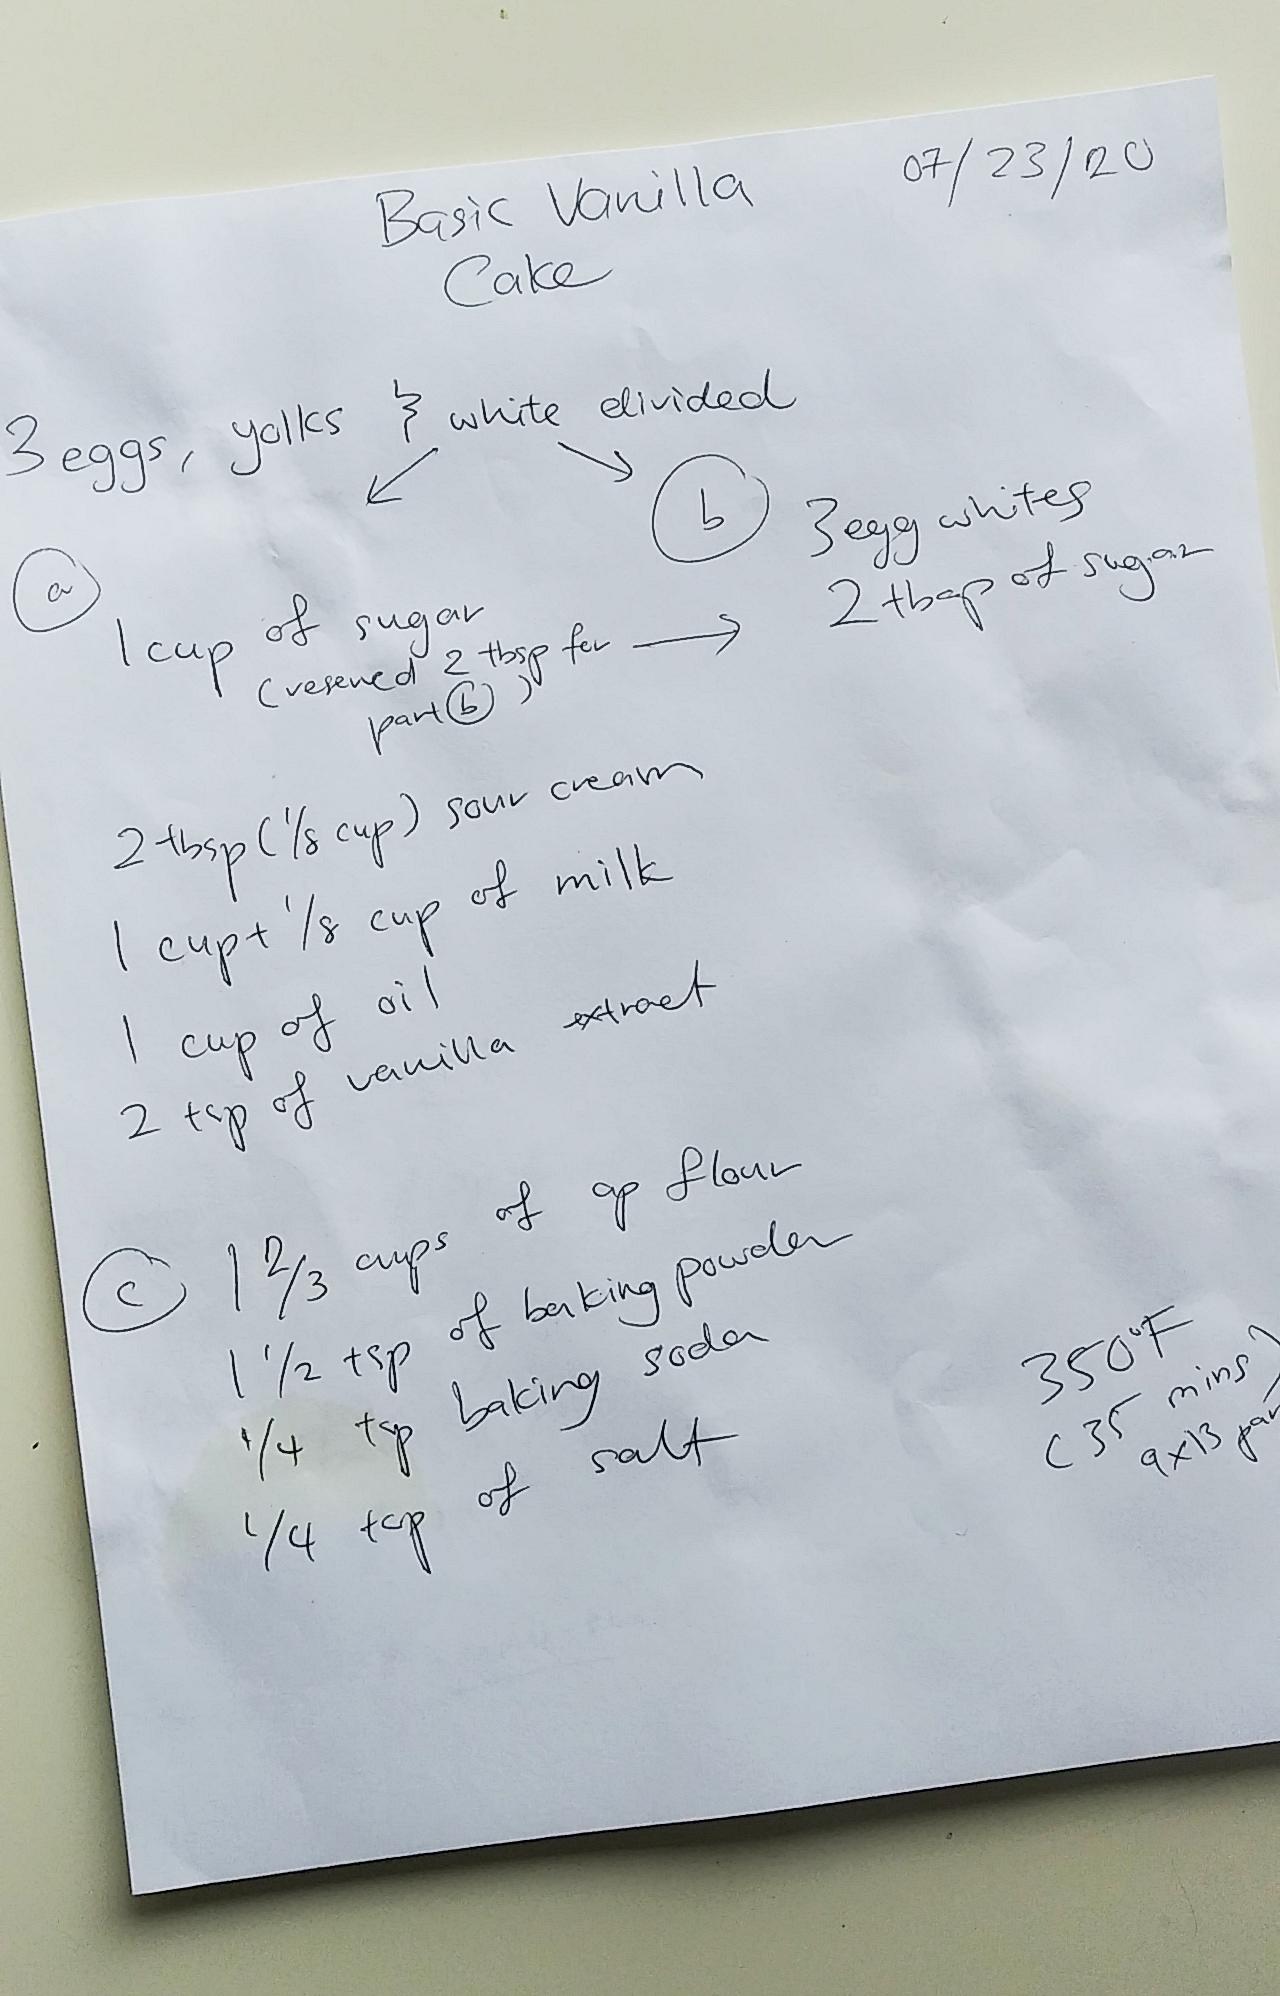 07/23/20
Basic Vanilla
Cake
3 eggs, yolks & white divided
a
1 cup of sugar
(reserved 2 tbsp for
part b)
b
3 egg whites
2 tbsp of sugar
2 tbsp (1/8 cup) sour cream
1 cup + 1/8 cup of milk
1 cup of oil
2 tsp of vanilla extract
c
1 2/3 cups of ap flour
1 1/2 tsp of baking powder
1/4 tsp baking soda
1/4 tsp of salt
350°F
(35 mins)
9x13 pan